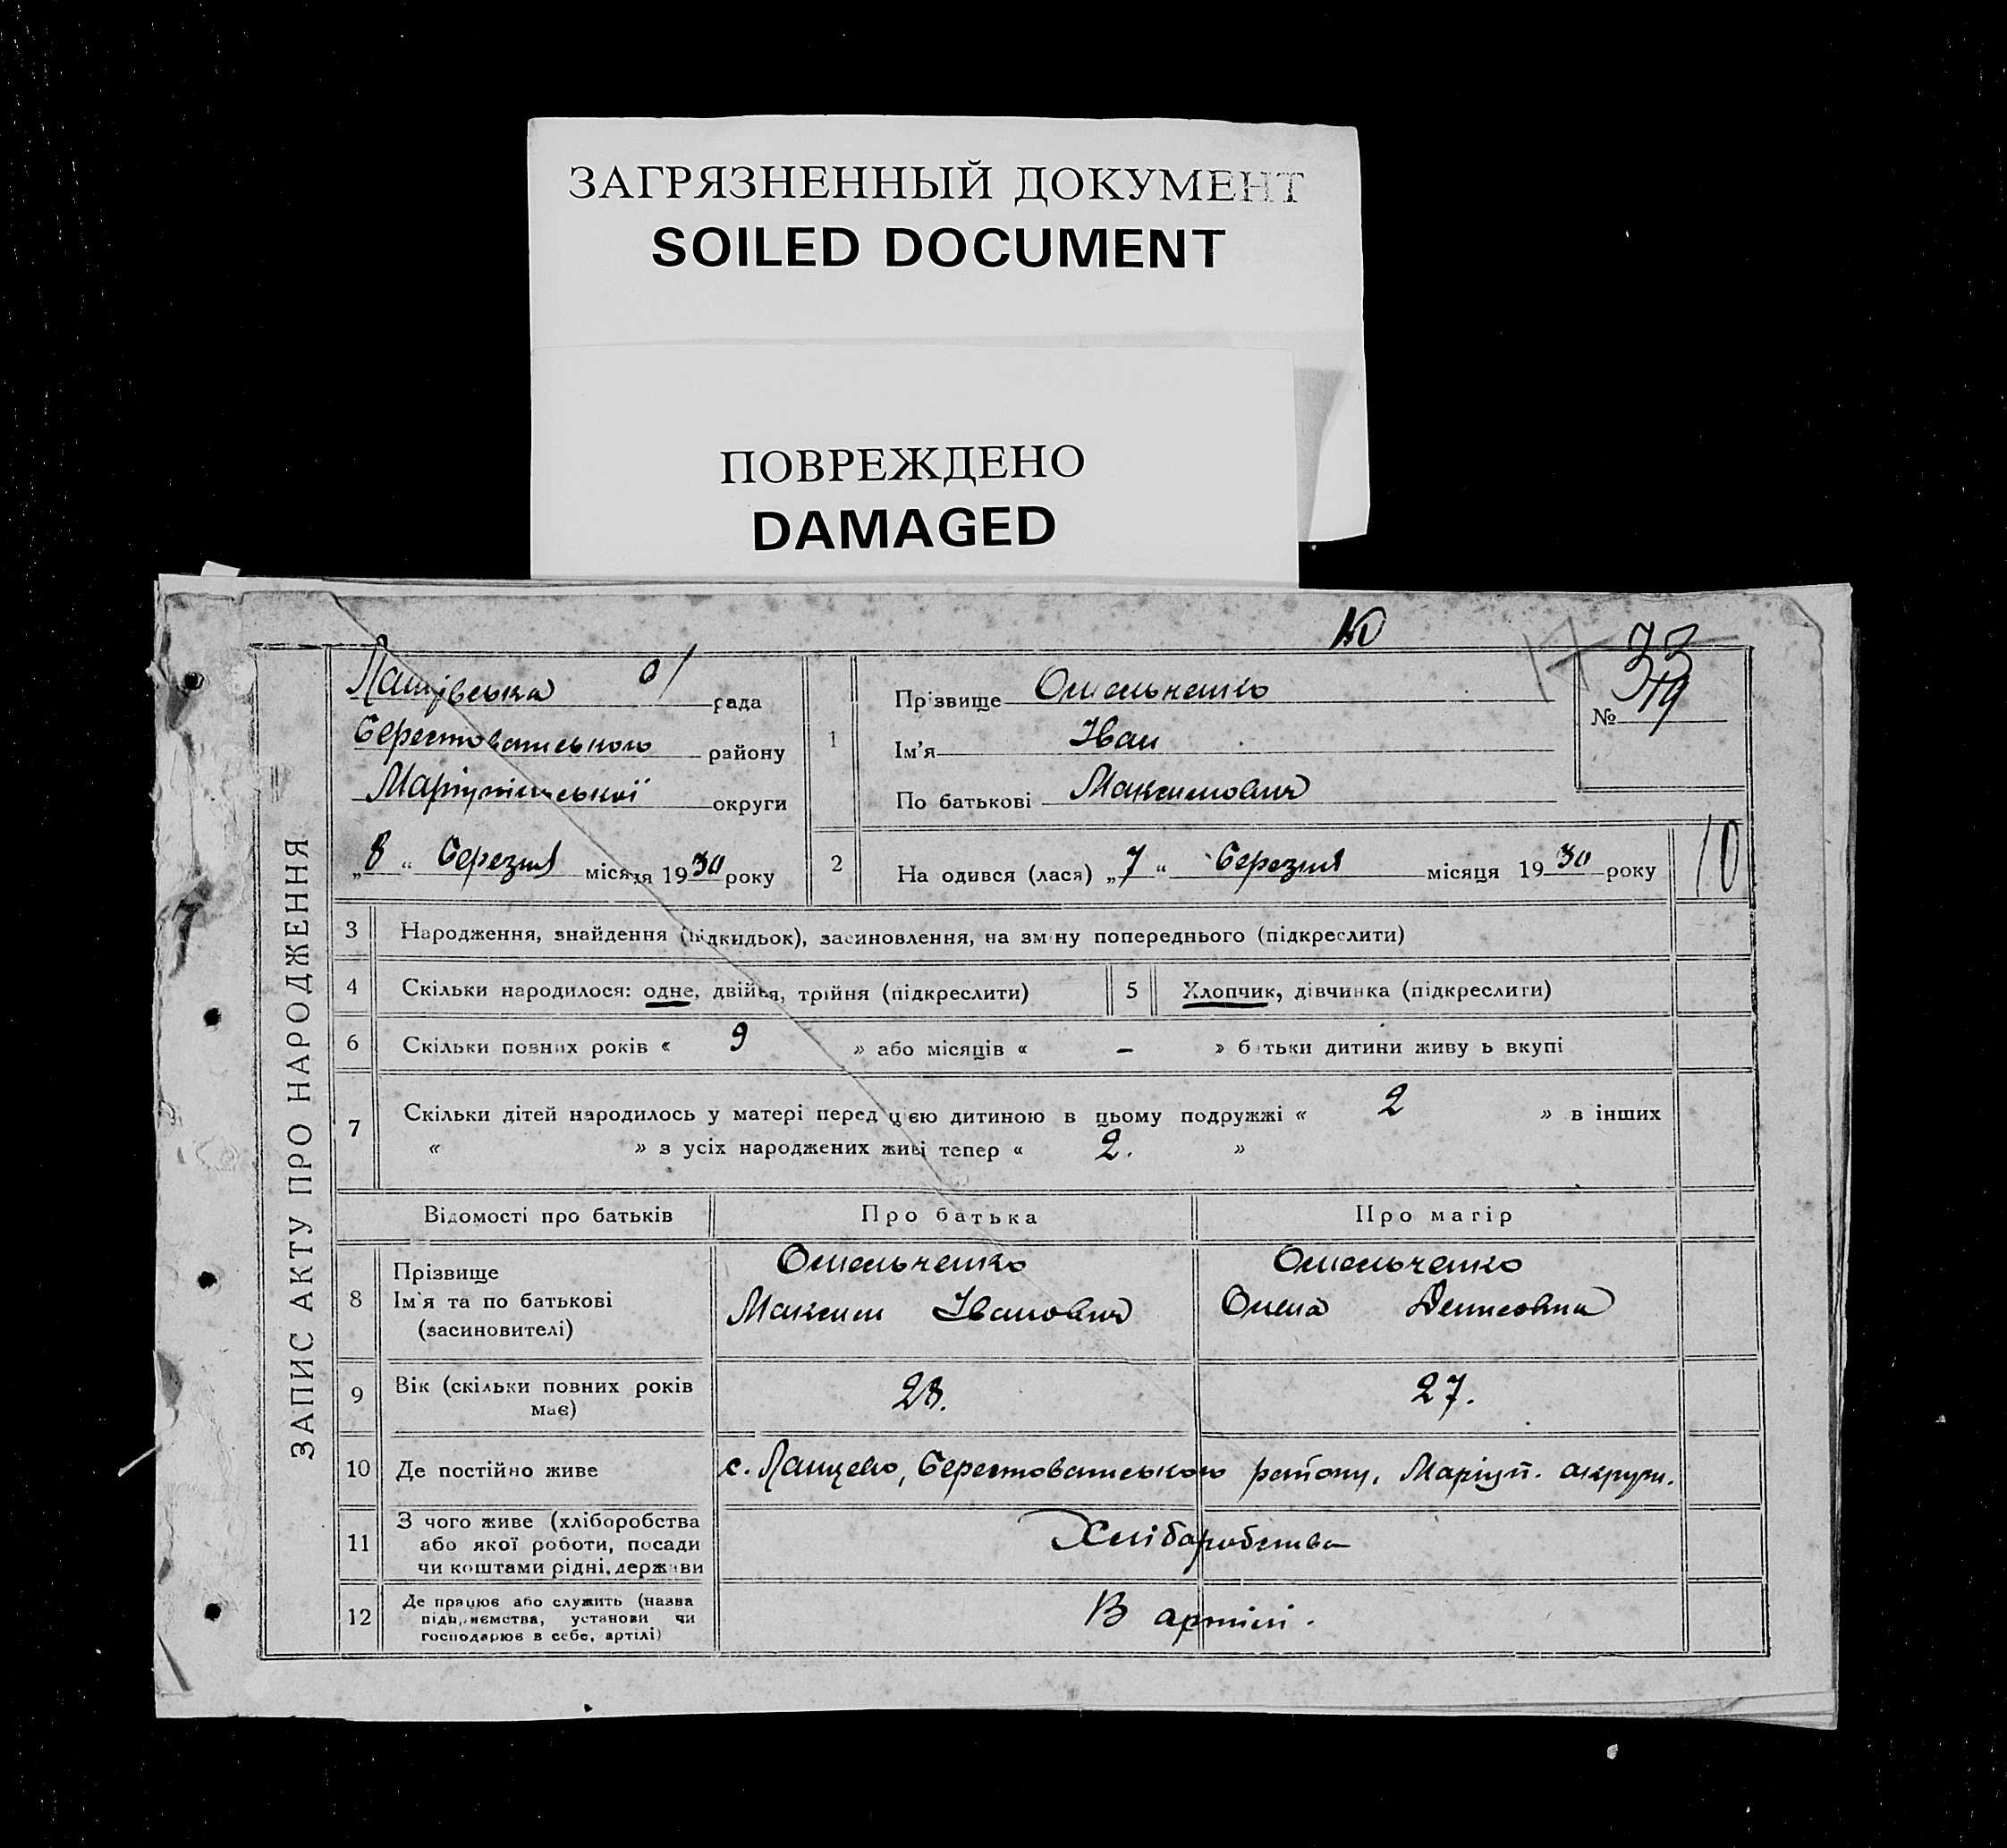 ЗАГРЯЗНЕННЫЙ ДОКУМЕНТ
SOILED DOCUMENT
ПОВРЕЖДЕНО
DAMAGED
ЗАПИС АКТУ ПРО НАРОДЖЕННЯ
рада
Берестоватського району
Маріупільської округи
„8“ Березня місяця 1930 року
1
Прізвище Омельченко
Ім'я Іван
По батькові Максимович
№
2
На одився (лася) „7“ Березня місяця 1930 року
10
3 Народження, знайдення (підкидьок), засиновлення, на зміну попереднього (підкреслити)
4 Скільки народилося: одне, двійня, трійня (підкреслити)
5 Хлопчик, дівчинка (підкреслити)
6 Скільки повних років « 9 » або місяців « – » батьки дитини живу ь вкупі
7 Скільки дітей народилось у матері перед цією дитиною в цьому подружжі « 2 » в інших
« » з усіх народжених живі тепер « 2. »
Відомості про батьків Про батька Про матір
8 Прізвище
Ім'я та по батькові
(засиновителі)
Омельченко
Максим Іванович
Омельченко
Олена Денисовна
9 Вік (скільки повних років
має)
28.
27.
10 Де постійно живе с. Лащево, Берестоватського району, Маріуп. округи.
11 З чого живе (хліборобства
або якої роботи, посади
чи коштами рідні, держави
Хліборобства
12 Де працює або служить (назва
підприємства, установи чи
господарює в себе, артілі)
В артілі.